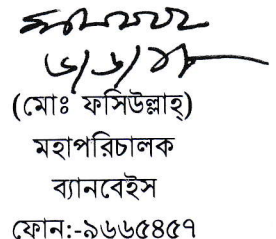 (মোঃ ফসিউল্লাহ্)
মহাপরিচালক
ব্যানবেইস
ফোন:-৯৬৬৫৪৫৭